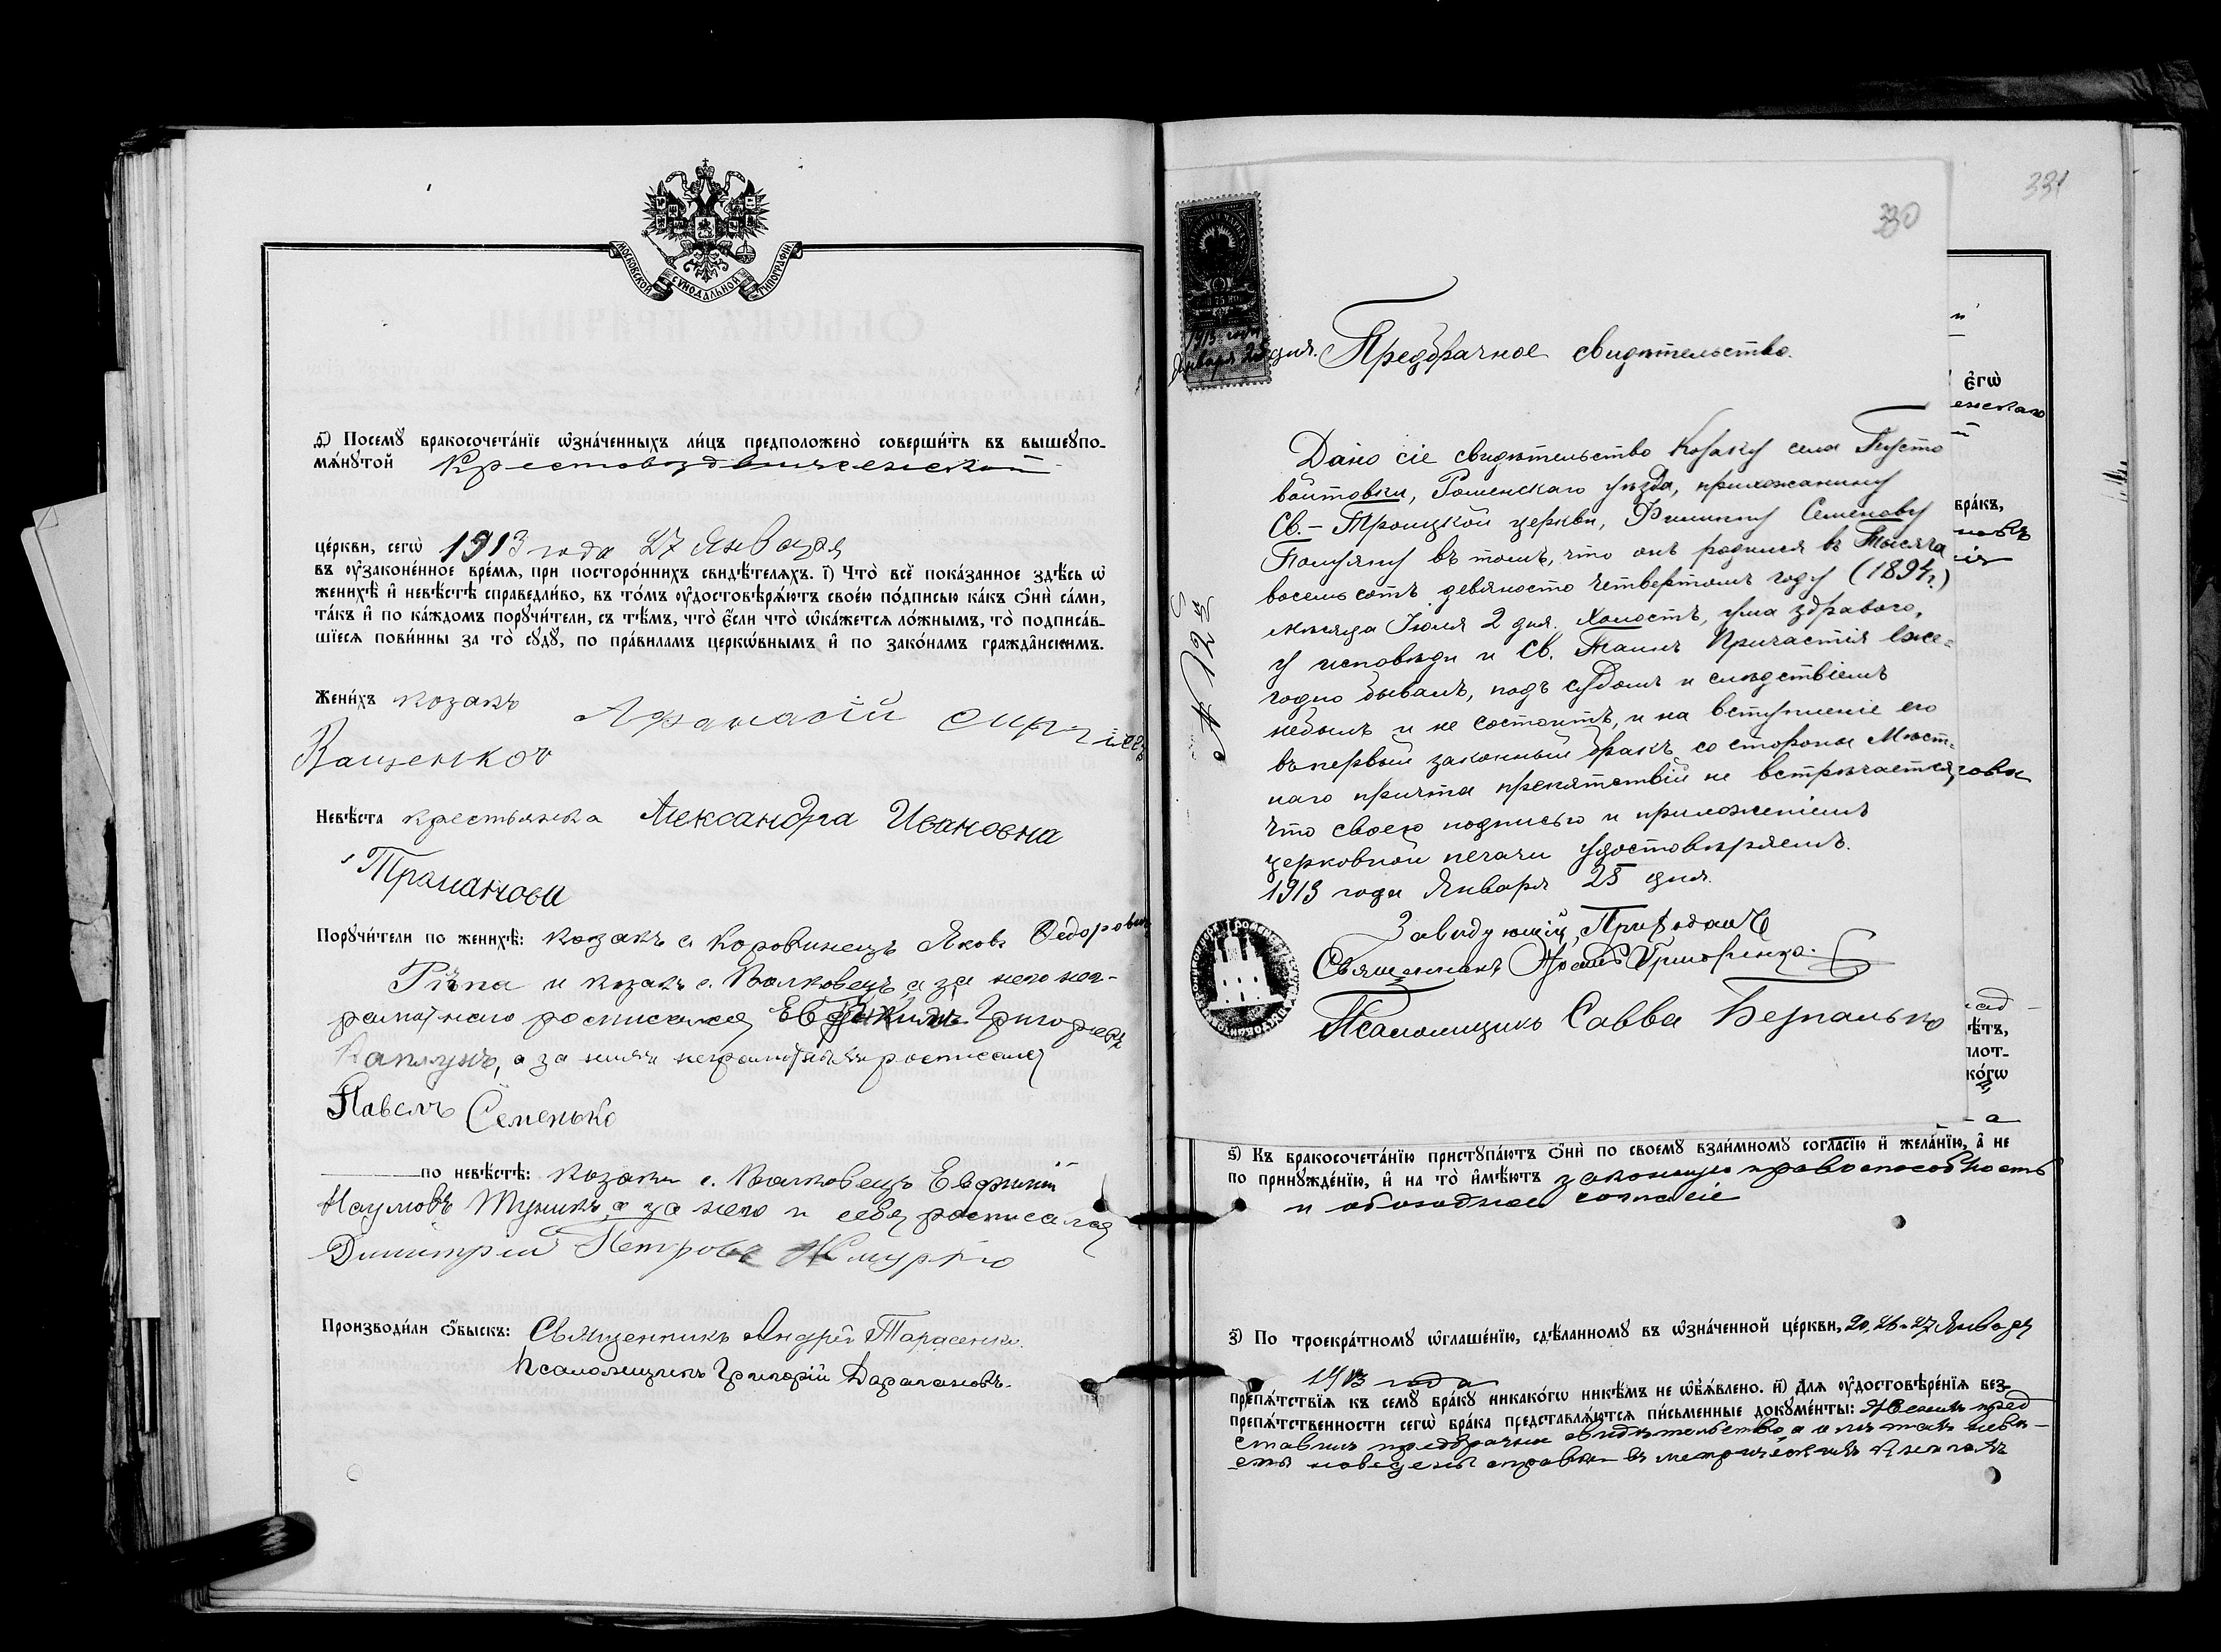 МОСКОВСКОЙ СѴНОДАЛЬНОЙ ТИПОГРАФІИ
Ѳ҃) Посемꙋ̀ бракосочета́нїе ѡ҆зна́ченныхъ ли́цъ предположено̀ соверши́ть въ вышеꙋпо-
мѧ́нꙋтой Крестовоздвиженской
це́ркви, сегѡ̀ 1913 года 27 Января
въ ᲂу҆законе́нное вре́мѧ, при посторо́ннихъ свидѣ́телѧхъ. І҃) Что̀ всѐ пока́занное здѣ́сь ѡ҆
женихѣ̀ и҆ невѣ́стѣ справедли́во, въ то́мъ ᲂу҆достовѣрѧ́ютъ свое́ю по́дписью ка́къ ѻ҆нѝ са́ми,
та́къ и҆ по ка́ждомъ порꙋчи́тели, съ тѣ́мъ, что̀ є҆́сли что̀ ѡ҆ка́жетсѧ ло́жнымъ, то̀ подписа́в-
шїесѧ пови́нны за то̀ сꙋдꙋ̀, по пра́виламъ церко́внымъ и҆ по зако́намъ гражда́нскимъ.
Жени́хъ козакъ Афанасій
Ващенков
Невѣ́ста крестьянка Александра Ивановна
Троманова
Порꙋчи́тели по женихѣ̀: козакъ с. Коровинецъ Яковъ Федоровъ
Ріпа и козакъ с. Волковецъ, а за него нег-
рамотнаго росписался Григорьевъ
Каплунъ, а за ними неграмотными росписался
Павелъ Семенько
по невѣ́стѣ: козаки с. Волковецъ Евфимій
Наумовъ Туникъ, а за него и себя росписался
Димитрий Петровъ Жмурко
Производи́ли ѻ҆́быскъ: Священникъ Андрей Тарасенко.
Псаломщикъ Григорій Дараганов.
331
330
1913 года
Января 25 дня.
Предбрачное свидѣтельство.
Дано сіе свидѣтельство Козаку села Пусто
войтовки, Роменскаго уѣзда, прихожанину
Св.-Троицкой церкви, Филиппу Семенову
въ томъ, что онъ родился въ Тысяча
восемьсотъ девяносто четвертомъ году (1894 г.)
мѣсяца Іюля 2 дня. Холостъ, ума здраваго,
у исповѣди и Св. Таинъ Причастія еже-
годно бывалъ, подъ судомъ и слѣдствіемъ
небылъ и не состоитъ, и на вступленіе его
въ первый законный бракъ со стороны Мѣст-
наго причта препятствій не встрѣчается,
что своею подписью и приложеніемъ
церковной печати удостовѣряемъ.
1913 года Января 25 дня.
№ 12
Завѣдующій Приходомъ
Священникъ Григоренко
Псаломщикъ Савва
є҆гѡ̀
бра́къ,
ѕ҃) Къ бракосочета́нїю пристꙋпа́ютъ ѻ҆нѝ по своемꙋ̀ взаи́мномꙋ согла́сїю и҆ жела́нїю, а҆ не
по принꙋжде́нїю, и҆ на то̀ и҆мѣ́ютъ законную правоспособность
и обоюдное согласіе
З҃) По троекра́тномꙋ ѡ҆глаше́нїю, сдѣ́ланномꙋ въ ѡ҆зна́ченной це́ркви, 20, 26 и 27 Января
1913 года
препѧ́тствїѧ къ семꙋ̀ бра́кꙋ никако́гѡ никѣ́мъ не ѡ҆б̾ѧ́влено. И҃) Длѧ ᲂу҆достовѣре́нїѧ без-
препѧ́тственности сегѡ̀ бра́ка представлѧ́ютсѧ пи́сьменные докꙋме́нты: Женихъ пред
ставилъ предбрачное свидѣтельство, а о лѣтахъ невѣ-
сты наведены справки въ метрическихъ книгахъ